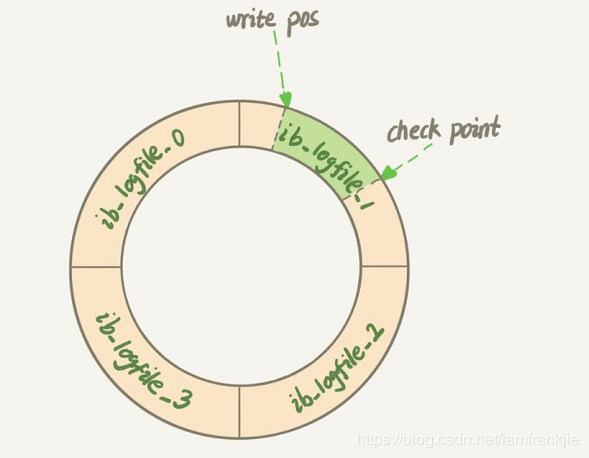 write pos
check point
ib_logfile_0
ib_logfile_1
ib_logfile_3
ib_logfile_2
https://blog.csdn.net/iamfrankjie